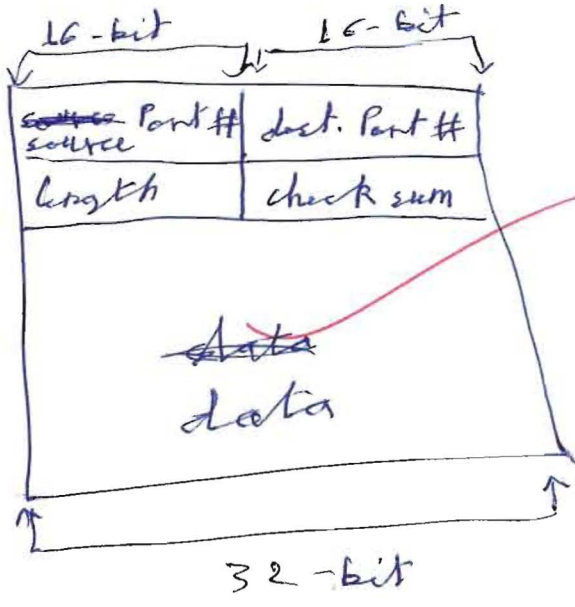 16-bit 16-bit
source Port # dest. Port #
source
length check sum
data
data
32-bit